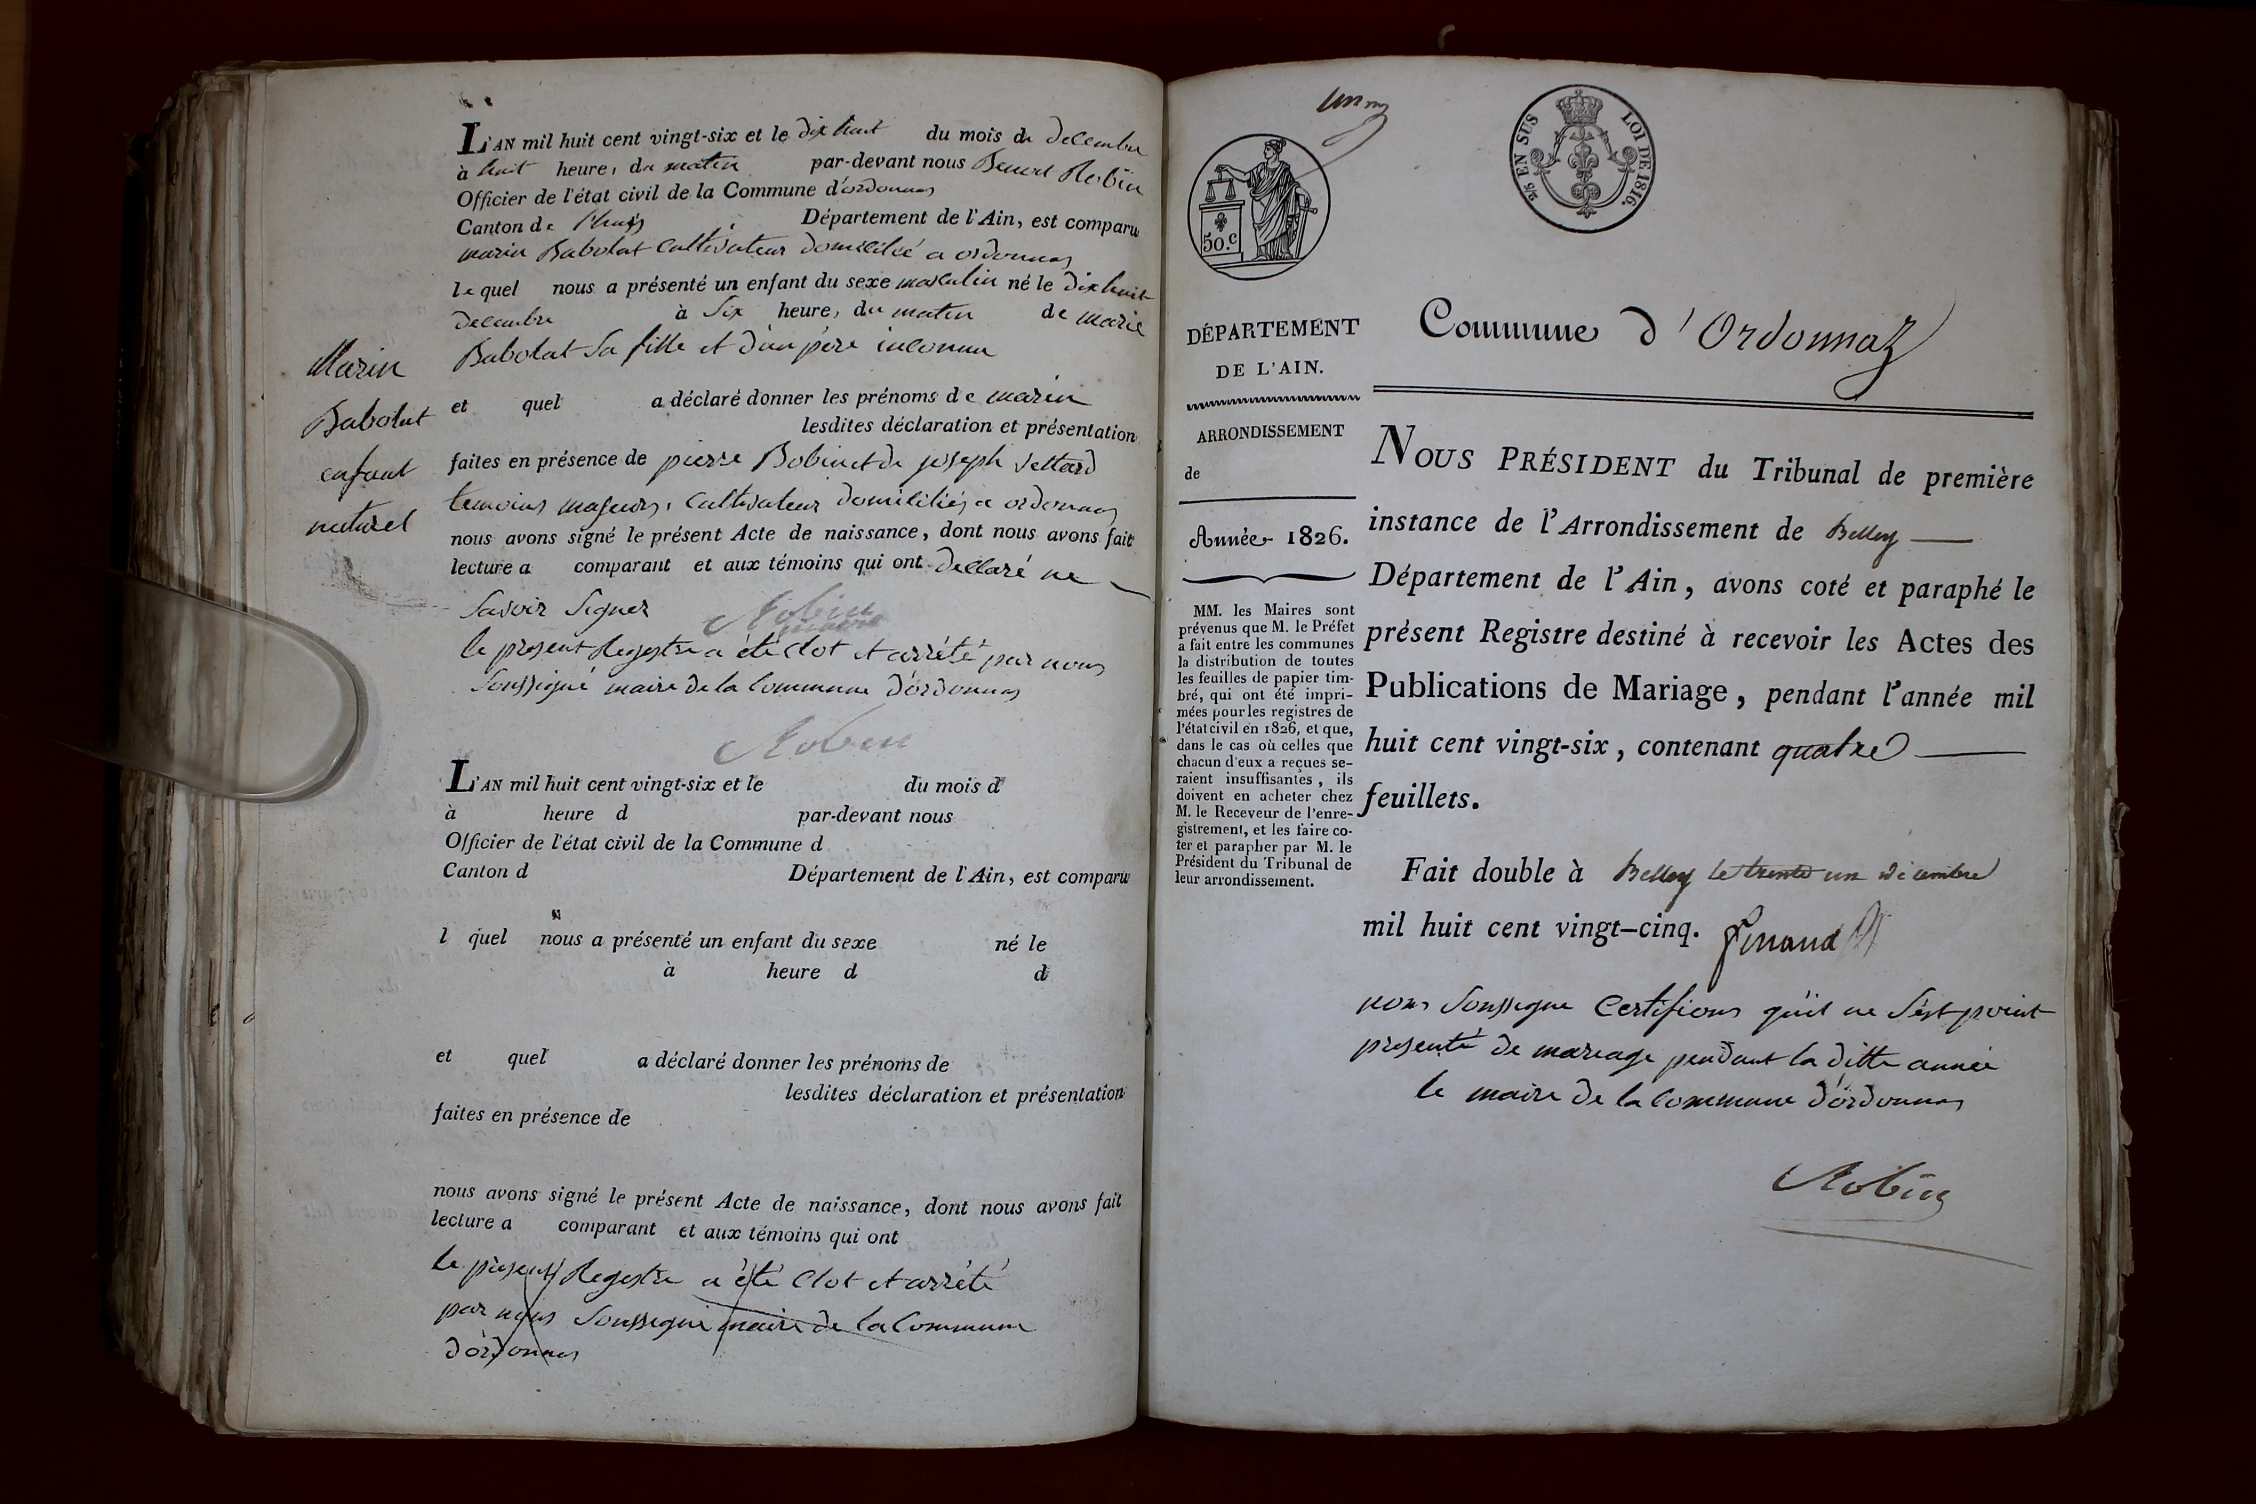 L'AN mil huit cent vingt-six et le dix huit du mois de decembre
à huit heure, du matin par-devant nous Benoit Robin
Officier de l'état civil de la Commune d'ordonnas
Canton de Département de l'Ain, est comparu
marin Babolat cultivateur domicilié a ordonnas
lequel nous a présenté un enfant du sexe masculin né le dix huit
decembre à six heure, du matin de marie
Babolat sa fille et d'un père inconnu
Marin
Babolat
enfant
naturel
et quel a déclaré donner les prénoms de marin
lesdites déclaration et présentation
faites en présence de pierre Bobin et de joseph
temoins majeurs, cultivateur domiciliés a ordonnas
nous avons signé le présent Acte de naissance, dont nous avons fait
lecture a comparant et aux témoins qui ont declaré ne
savoir signer Robin
maire
le present Registre a été clot et arrété par nous
soussigné maire de la commune d'ordonnas
Robin
L'AN mil huit cent vingt-six et le du mois d
à heure d par-devant nous
Officier de l'état civil de la Commune d
Canton d Département de l'Ain, est comparu
l quel nous a présenté un enfant du sexe né le
à heure d d
et quel a déclaré donner les prénoms de
lesdites déclaration et présentation
faites en présence de
nous avons signé le présent Acte de naissance, dont nous avons fait
lecture a comparant et aux témoins qui ont
le present Registre a été clot et arrété
par nous soussigné maire de la commune
d'ordonnas
2/5 EN SUS LOI DE 1816.
50.c
DÉPARTEMENT
DE L'AIN.
ARRONDISSEMENT
de
Année 1826.
MM. les Maires sont
prévenus que M. le Préfet
a fait entre les communes
la distribution de toutes
les feuilles de papier tim-
bré, qui ont été impri-
mées pour les registres de
l'état civil en 1826, et que,
dans le cas où celles que
chacun d'eux a reçues se-
raient insuffisantes, ils
doivent en acheter chez
M. le Receveur de l'enre-
gistrement, et les faire co-
ter et parapher par M. le
Président du Tribunal de
leur arrondissement.
Commune d'Ordonnaz
NOUS PRÉSIDENT du Tribunal de première
instance de l'Arrondissement de Belley
Département de l'Ain, avons coté et paraphé le
présent Registre destiné à recevoir les Actes des
Publications de Mariage, pendant l'année mil
huit cent vingt-six, contenant quatre
feuillets.
Fait double à Belley le trente un décembre
mil huit cent vingt-cinq.
nous soussigne certifions qu'il ne s'est point
presenté de mareage pendant la ditte année
le maire de la commune d'ordonnas
Robin